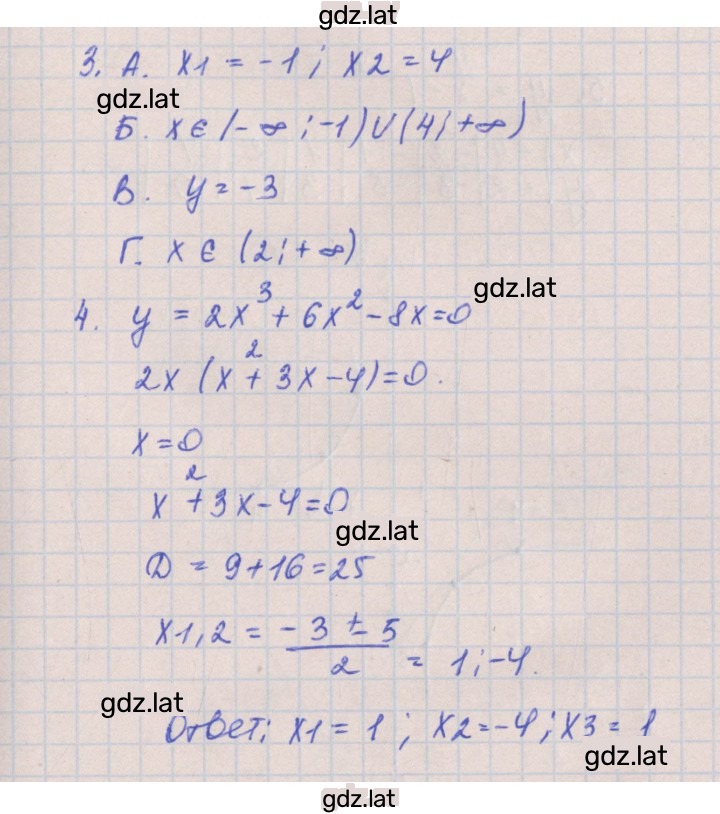 gdz.lat
3. А. x1 = -1; x2 = 4
gdz.lat
Б. x ∈ (-∞; -1) ∪ (4; +∞)
В. y = -3
Г. x ∈ (2; +∞)
gdz.lat
4. y = 2x³ + 6x² - 8x = 0
2x (x² + 3x - 4) = 0.
x = 0
x² + 3x - 4 = 0
gdz.lat
D = 9 + 16 = 25
x1,2 = (-3 ± 5)/2 = 1; -4.
gdz.lat
Ответ: x1 = 1; x2 = -4; x3 = 1
gdz.lat
gdz.lat